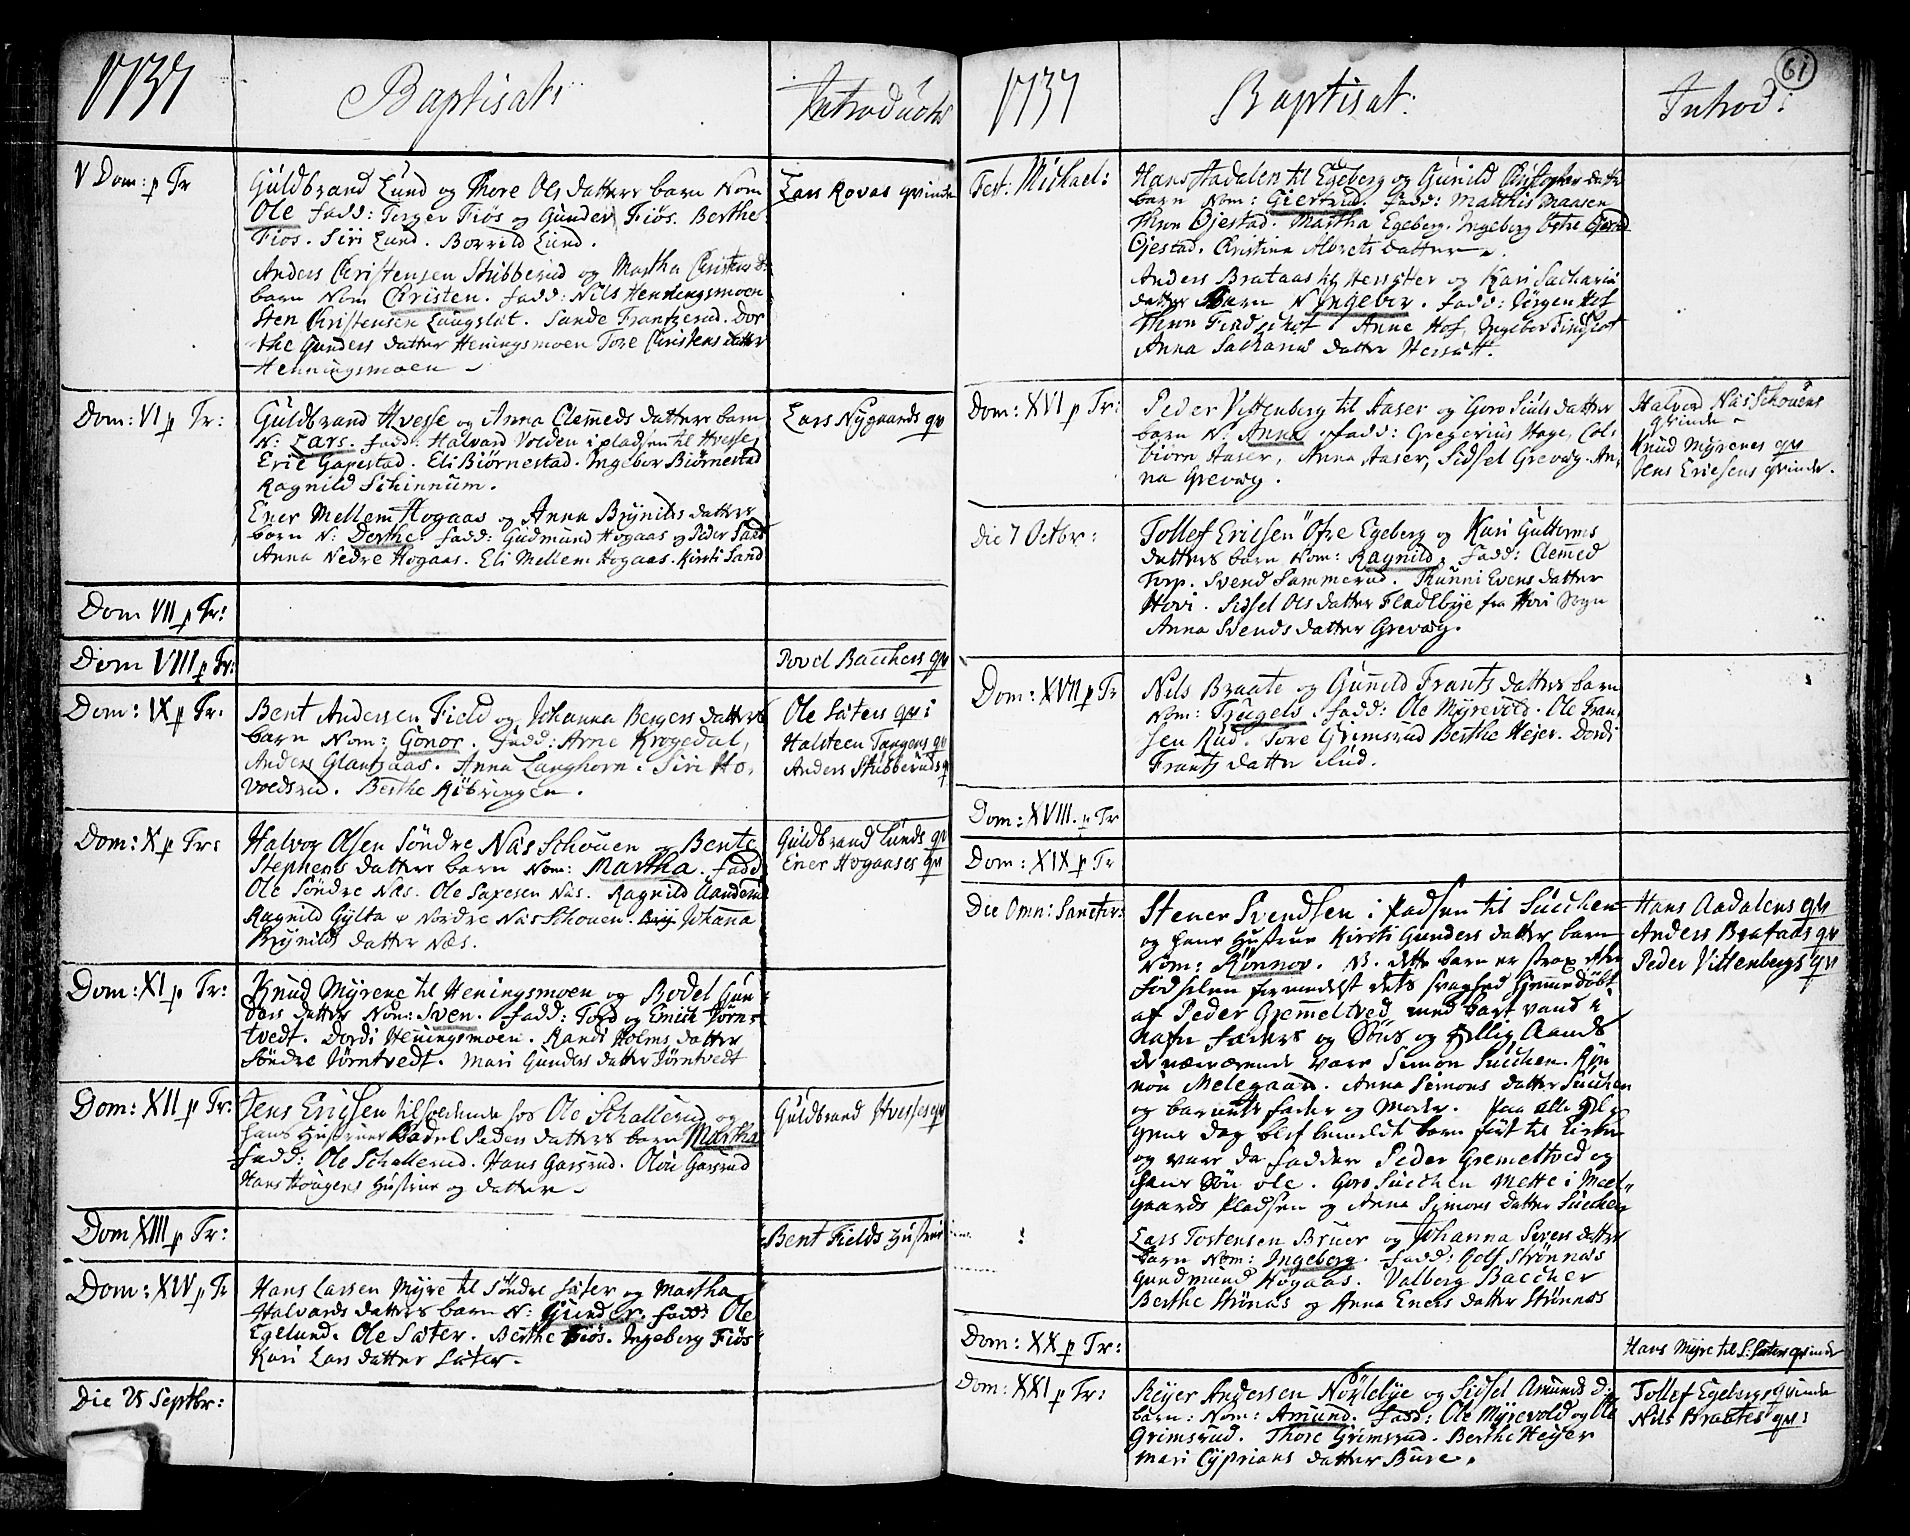 1737
Baptisat:
Introducto
V Dom: p Tr
Guldbrand Lund og Thore Ols datters barn Nom
Ole. fadd: Torger Fiøs og Gunder Fiøs. Berthe
Fiøs. Siri Lund. Borrild Lund.
Anders Christensen Stubberud og Martha Christens d:
barn Nom Christen. fadd: Nils Henningsmoen
Sten Christensen Langslet. Sande Frantzerud. Dor
the Gunders datter Heningsmoen Tore Christens datter
Henningsmoen
Lars Rovas qvinde
Dom: VI p Tr:
Guldbrand Hvesse og Anna Clemeds datters barn
N: Lars. fadd: Halvard Volden i pladsen til Hvesse,
Eric Gapestad. Eli Biørnestad. Ingebor Biørnestad
Ragnild Schinnum.
Ener Mellem Hogaas og Anna Brynilds datters
barn N: Dorthe. fadd: Gudmund Hogaas og Peder Sand
Anna Nedre Hogaas. Eli Mellem Hogaas. Kirsti Sand
Lars Nygaards qv
Dom VII p Tr:
Dom VIII p Tr:
Povel Bacchers qv
Dom: IX p Tr:
Bent Andersen Field og Johanna Bergers datters
barn Nom: Gonor. fadd: Arne Krogedal,
Anders Glantzaas. Anna Langhorn. Siri Ho-
voedsrud. Berthe Kibsringen.
Ole Sæters qv:
Halsteen Tangens qv
Anders Stubberuds q
Dom: X p Tr:
Halvor Olsen Søndre Næs Schouen og Bente
Stephens datters barn Nom: Martha. fadd
Ole Søndre Næs. Ole Saxesen Næs. Ragnild Aanderud
Ragnild Gylta og Nordre Næs Schouen. Johana
Brynilds datter Næs.
Guldbrand Lunds qv
Ener Hogaases qv
Dom: XI p Tr:
Knud Myrene til Heningsmoen og Bodel Gun
ders datters Nom: Sven. fadd: Tord og Emist Jørn-
tvedt. Dordi Heningsmoen. Randi Holms datter
Søndre Jørntvedt. Mari Gunders datter Jørntvedt
Dom: XII p Tr:
Jens Ericsen tilholdende hos Ole Schallerud og
hans Hustrue Bodel Peders datters barn Martha
fadd: Ole Schallerud. Hans Garsrud. Olou Garsrud
Hans Hougens Hustrue og datter
Guldbrand Hvesses qv
Dom XIII p Tr:
Bent Fields Hustrue
Dom: XIV p Tr
Hans Larsen Myre til Søndre Sæter og Martha
Halvards datters barn N: Gunder. fadd: Ole
Egelund. Ole Sæter. Berthe Fiøs. Ingeberg Fiøs
Kari Lars datter Sæter.
Die 25 Septbr:
61
1737
Baptisat:
Introd:
Fest: Michael:
Hans Aadalen til Egeberg og Gunild Christopher datte
barn Nom: Giertrud. fadd: Matthis Maasen
Thron Øjestad. Martha Egeberg. Ingeberg Østre
Øjestad. Christina Albrets datter.
Anders Brataas til Hersætter og Kari Sacharias
datters Barn N Ingebor. fadd: Jørgen Hof
Thron Findslet. Anne Hof. Ingebor Findslet
Anna Sacharias datter Hersætt.
Dom: XVI p Tr:
Peder Vittenberg til Aaser og Goro Siuls datter
barn N: Anna. fadd: Gregorius Hage, Col-
biørn Aaser, Anna Aaser, Sidsel Grevæg. An-
na Grevæg.
Halvor Næs Schouens
qvinde
Knud Myrenes qv
Jens Ericsens qvinde.
Die 7 Octbr:
Tollef Ericsen Øfre Egeberg og Kari Guttorms
datters barn Nom: Ragnild. fadd: Clemed
Torp. Svend Sammerud. Thunni Evens datter
Hovi. Sidsel Ols datter Fladebye fra Hovi Sogn
Anna Svends datter Grevæg.
Dom: XVII p Tr
Nils Braate og Gunild Frantz datters barn
Nom: Trugels. fadd: Ole Myrevold. Ole Fran
sen Rud. Tore Grimsrud Berthe Hejer. Dordi
Frantz datter Rud.
Dom: XVIII. p Tr
Dom: XIX p Tr
Die Omn: Sanctor:
Stener Svendsen i Pladsen til Succhen
og hans Hustrue Kirsti Gunders datter barn
Nom: Rønnov. N. dette barn er strax efter
fødselen formedelst dets svaghed hjemmedøbt
af Peder Gremeltved med bart vand i
Nafn Faders og Søns og Hellig Aands
de nærværende vare Simon Succhen. Røn
nou Melegaard. Anna Simons datter Succhen
og barnets Fader og Moder. Paa alle Hel-
gens dag blef bemeldt barn ført til kirken
og vare da fadder Peder Gremeltved og
hans Søn Ole. Goro Succhen Mette i Mel-
gaards Pladsen og Anna Simons datter Succhen
Hans Aadalens qv
Anders Brataas qv
Peder Vittenbergs qv
Lars Tostensen Bruer og Johanna Sivers datter
barn Nom: Ingeberg. fadd: Golf Strønnæs
Gundmund Hogaas. Valberg Baccher
Berthe Strønæs og Anna Eners datter Strønnæs
Dom: XX p Tr:
Hans Myre til S: Sæters qvinde
Dom: XXI p Tr:
Reyer Andersen Nøklebye og Sidsel Amunds d:
barn: Nom: Amund. fadd: Ole Myrevold og Ole
Grimsrud. Thore Grimsrud. Berthe Heyer
Mari Cyprians datter Bure.
Tollef Egebergs Qvinde
Nils Braates qv: